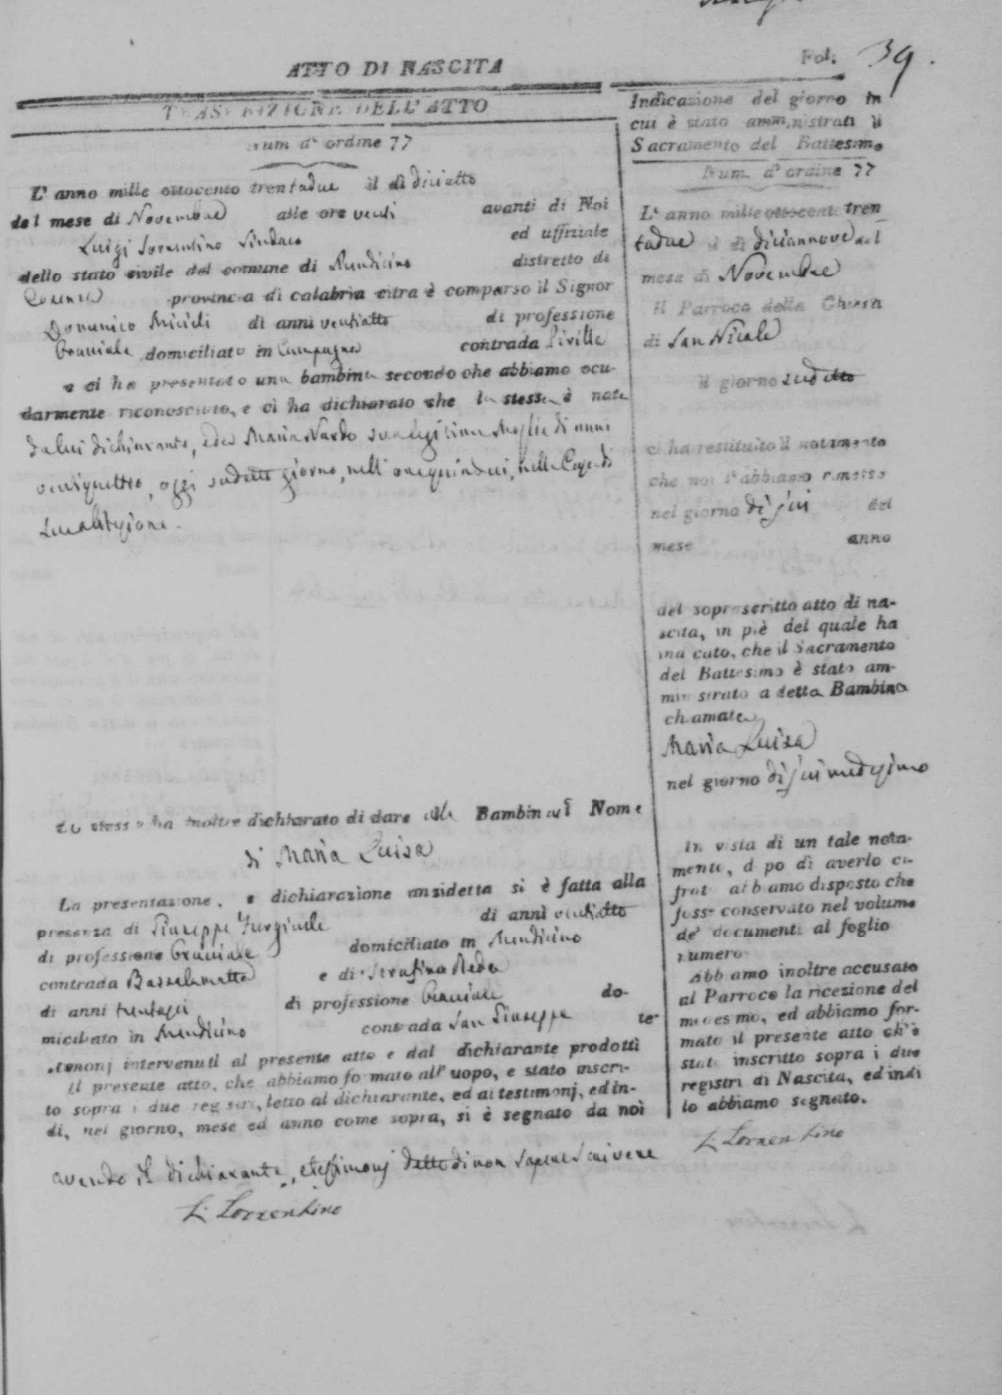 Fol. 39.
ATTO DI NASCITA
TRASCRIZIONE DELL'ATTO
Num d'ordine 77
L'anno mille ottocento trentadue il dì diciotto
del mese di Novembre alle ore venti avanti di Noi
Luigi Sorrentino Sindaco ed uffiziale
dello stato civile del comune di Mendicino distretto di
Cosenza provincia di calabria citra è comparso il Signor
Domenico Miceli di anni ventiotto di professione
Bracciale domiciliato in Campagna contrada
e ci ha presentato una bambina secondo che abbiamo ocu-
darmente riconosciuto, e ci ha dichiarato che la stessa è nata
da lui dichiarante, e da Maria Nardo sua legitima Moglie di anni
ventiquattro, oggi sudetto giorno, nell'ore quindici, nella Casa di
sua abitazione.
Lo stesso ha inoltre dichiarato di dare alla Bambina il Nome
di Maria Luisa
La presentazione, e dichiarazione anzidetta si è fatta alla
presenza di Giuseppe di anni ventiotto
di professione Bracciale domiciliato in Mendicino
contrada e di Serafino Reda
di anni trentasei di professione Bracciale do-
miciliato in Mendicino contrada San Giuseppe te-
stimonj intervenuti al presente atto e dal dichiarante prodotti
Il presente atto, che abbiamo formato all'uopo, e stato inscri-
to sopra i due registri, letto al dichiarante, ed ai testimonj, ed in-
di, nel giorno, mese ed anno come sopra, si è segnato da noi
avendo il dichiarante, e testimonj detto di non sapere scrivere
L. Sorrentino
Indicazione del giorno in
cui è stato amministrati il
Sacramento del Battesimo
Num d'ordine 77
L'anno mille ottocento tren
tadue il dì diciannove del
mese di Novembre
il Parroco della Chiesa
di San Nicola
il giorno sudetto
ci ha restituito il notamento
che noi l'abbiamo rimesso
nel giorno di jeri del
mese anno
del soprascritto atto di na-
scita, in piè del quale ha
indicato, che il Sacramento
del Battesimo è stato am-
ministrato a detta Bambina
chiamata
Maria Luisa
nel giorno di jeri medesimo
In vista di un tale nota-
mento, dopo di averlo ci-
frato abbiamo disposto che
fosse conservato nel volume
de' documenti al foglio
numero
Abbiamo inoltre accusato
al Parroco la ricezione del
medesimo, ed abbiamo for-
mato il presente atto ch'è
stato inscritto sopra i due
registri di Nascita, ed indi
lo abbiamo segnato.
L. Sorrentino